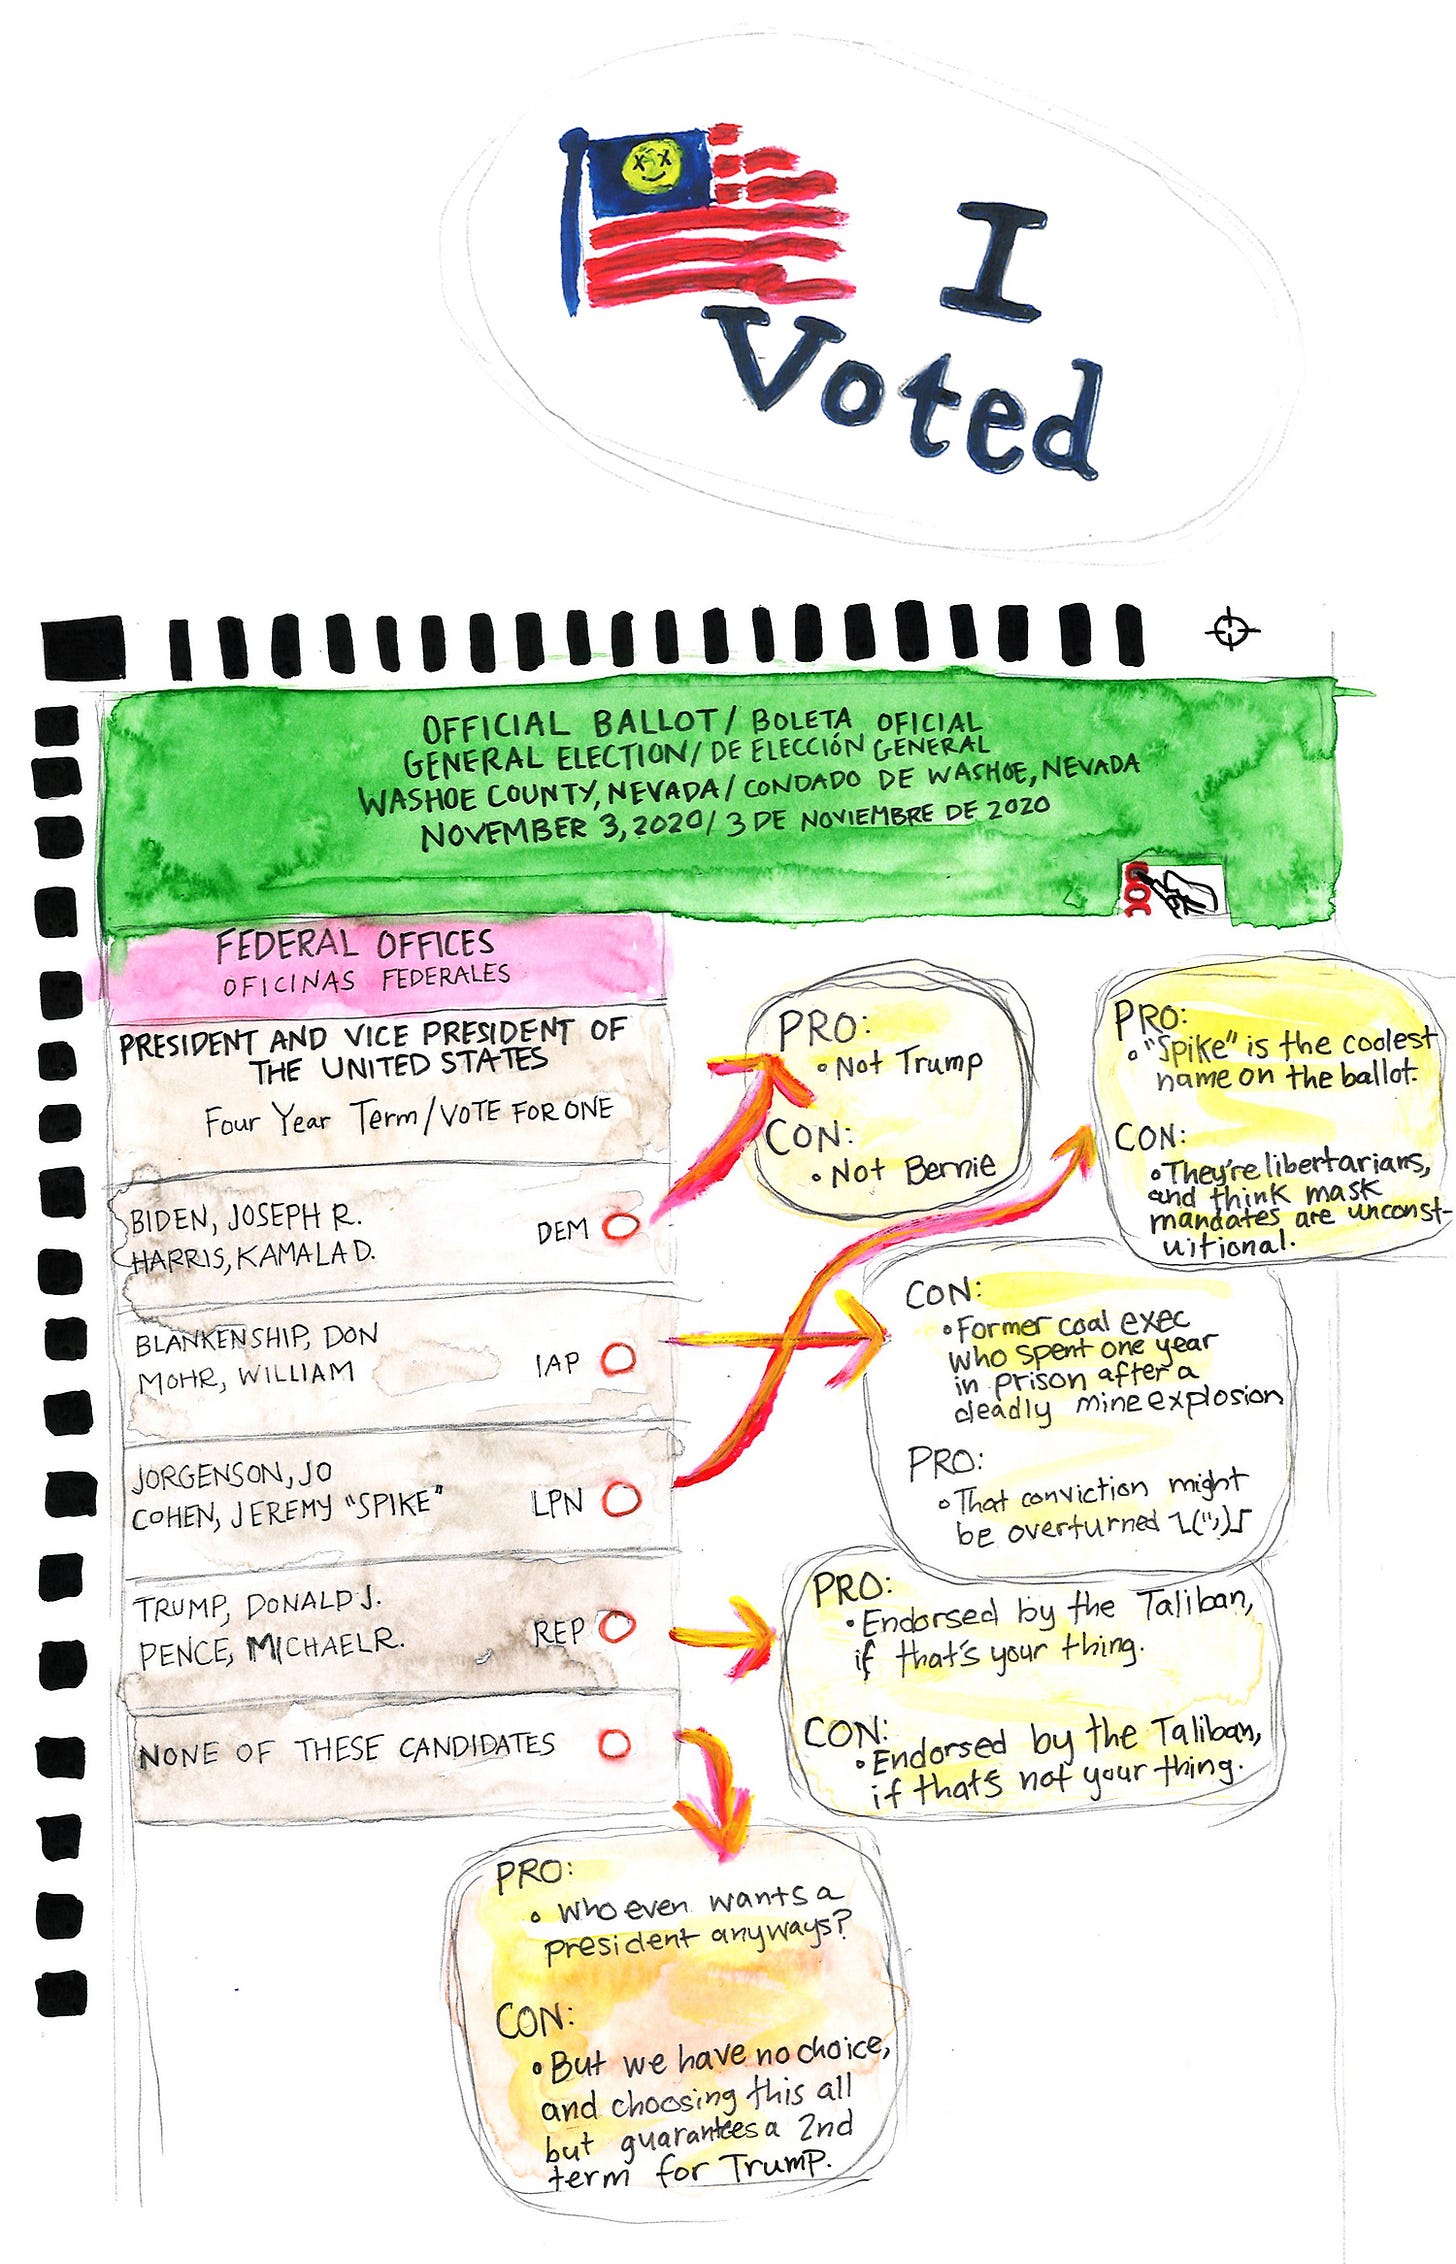 I
Voted
OFFICIAL BALLOT/ BOLETA OFICIAL
GENERAL ELECTION/ DE ELECCIÓN GENERAL
WASHOE COUNTY, NEVADA/ CONDADO DE WASHOE, NEVADA
NOVEMBER 3, 2020/ 3 DE NOVIEMBRE DE 2020
FEDERAL OFFICES
OFICINAS FEDERALES
PRESIDENT AND VICE PRESIDENT OF
THE UNITED STATES
Four Year Term/VOTE FOR ONE
BIDEN, JOSEPH R.
HARRIS, KAMALA D.
DEM
PRO:
• Not Trump
CON:
• Not Bernie
BLANKENSHIP, DON
MOHR, WILLIAM
IAP
CON:
• Former coal exec
who spent one year
in prison after a
deadly mine explosion
PRO:
• That conviction might
be overturned ┐(";)┌
JORGENSON, JO
COHEN, JEREMY "SPIKE"
LPN
PRO:
• "Spike" is the coolest
name on the ballot.
CON:
• They're libertarians,
and think mask
mandates are unconst-
uitional.
TRUMP, DONALD J.
PENCE, MICHAEL R.
REP
PRO:
• Endorsed by the Taliban,
if that's your thing.
CON:
• Endorsed by the Taliban,
if that's not your thing.
NONE OF THESE CANDIDATES
PRO:
• Who even wants a
president anyways?
CON:
• But we have no choice,
and choosing this all
but guarantees a 2nd
term for Trump.